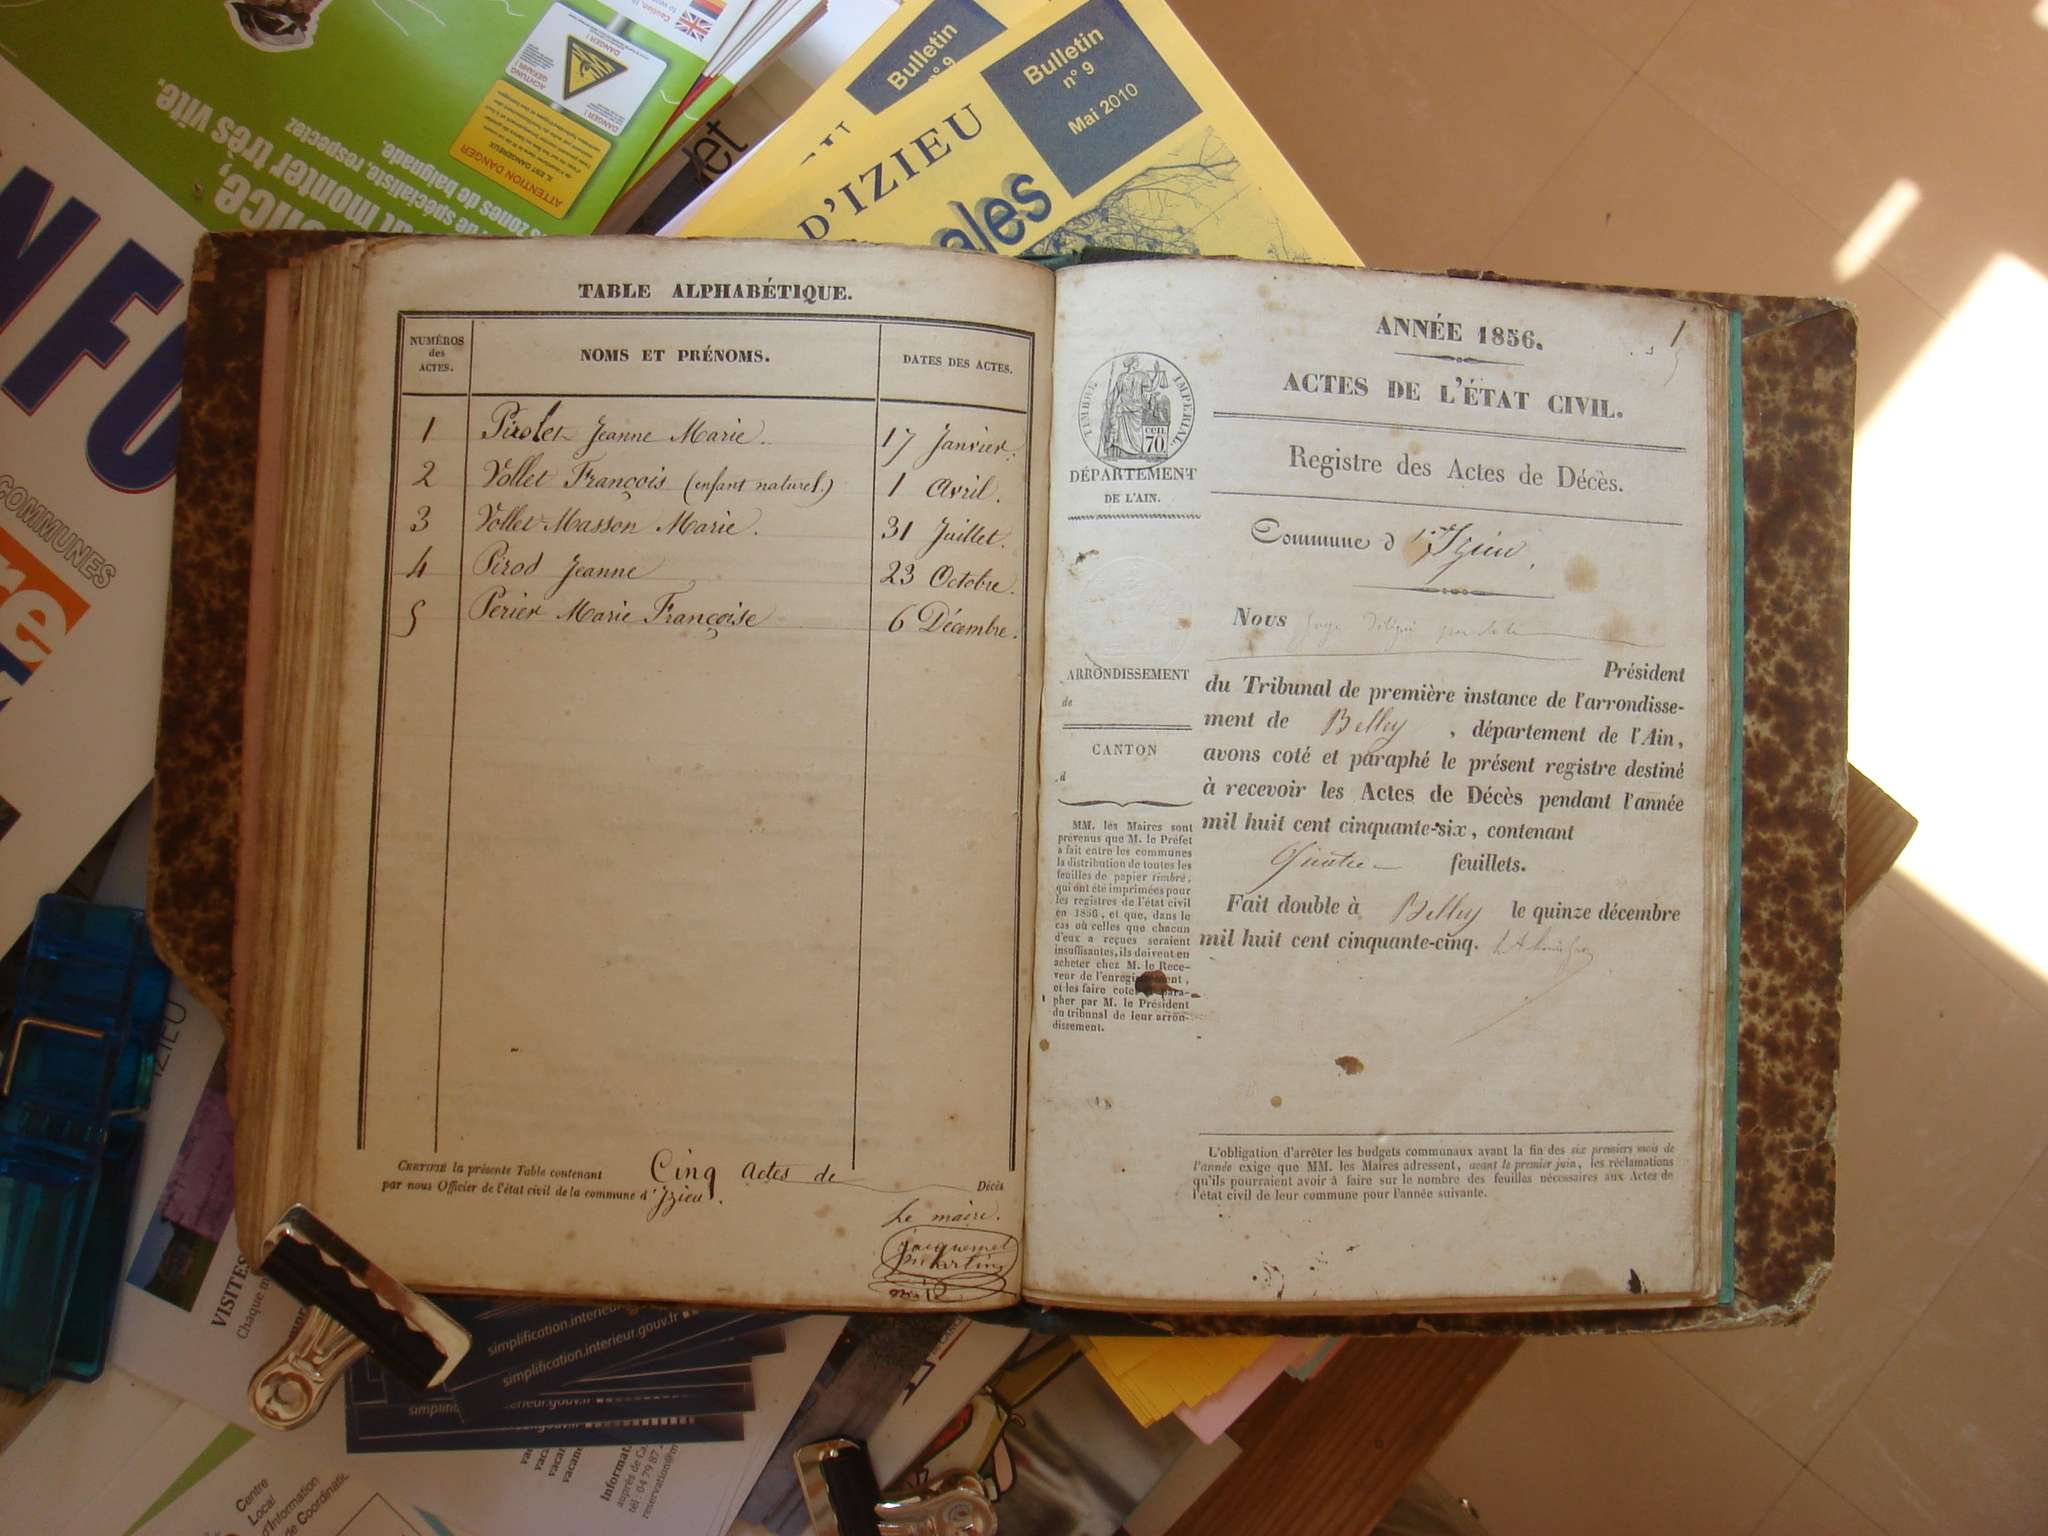 Bulletin
n° 9
Bulletin
n° 9
Mai 2010
D'IZIEU
ales
let
Caution,
ACHTUNG
GEFAHR !
DANGER !
ATTENTION DANGER
once,
t monter très vite.
de spécialiste, respectez
s zones de baignade.
NFO
COMMUNES
re
TABLE ALPHABÉTIQUE.
NUMÉROS
des
ACTES.
NOMS ET PRÉNOMS.
DATES DES ACTES.
1 Pirolet Jeanne Marie. 17 Janvier.
2 Vollet François (enfant naturel.) 1 Avril.
3 Vollet-Masson Marie. 31 Juillet.
4 Pirod Jeanne 23 Octobre.
5 Perier Marie Françoise 6 Décembre.
CERTIFIÉ la présente Table contenant Cinq actes de Décès
par nous Officier de l'état civil de la commune d'Izieu.
Le maire.
Jacquemet
Martin
1
ANNÉE 1856.
ACTES DE L'ÉTAT CIVIL.
TIMBRE IMPÉRIAL.
cen.
70.
DÉPARTEMENT
DE L'AIN.
Registre des Actes de Décès.
Commune d'Izieu.
Nous Juge délégué
Président
du Tribunal de première instance de l'arrondisse-
ment de Belley, département de l'Ain,
avons coté et paraphé le présent registre destiné
à recevoir les Actes de Décès pendant l'année
mil huit cent cinquante-six, contenant
Quatre feuillets.
Fait double à Belley le quinze décembre
mil huit cent cinquante-cinq.
ARRONDISSEMENT
de
CANTON
d
MM. les Maires sont
prévenus que M. le Préfet
a fait entre les communes
la distribution de toutes les
feuilles de papier timbré,
qui ont été imprimées pour
les registres de l'état civil
en 1856, et que, dans le
cas où celles que chacun
d'eux a reçues seraient
insuffisantes, ils doivent en
acheter chez M. le Rece-
veur de l'enregistrement,
et les faire coter et para-
pher par M. le Président
du tribunal de leur arron-
dissement.
L'obligation d'arrêter les budgets communaux avant la fin des six premiers mois de
l'année exige que MM. les Maires adressent, avant le premier juin, les réclamations
qu'ils pourraient avoir à faire sur le nombre des feuilles nécessaires aux Actes de
l'état civil de leur commune pour l'année suivante.
IZIEU
VISITES
Chaque m
simplification.interieur.gouv.fr
simplification.interieur.gouv.fr
Centre
Local
d'Information
de Coordinatio
Informat
auprès de Ca
tél : 04 79 87
reservation@m